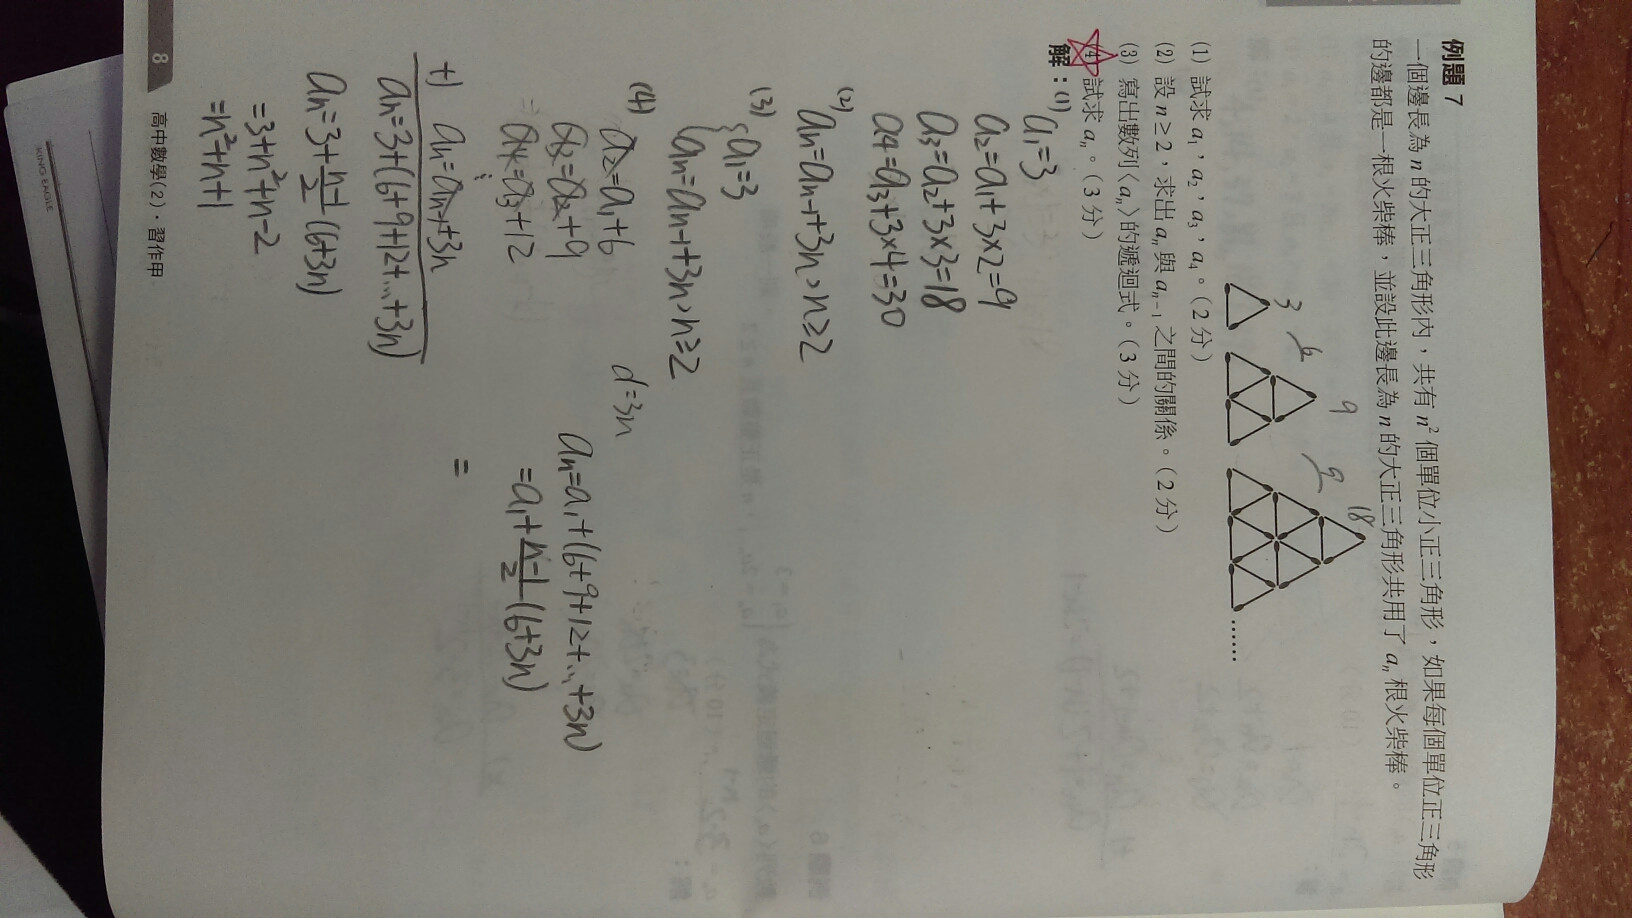 例題 7
一個邊長為 n 的大正三角形內,共有 n² 個單位小正三角形,如果每個單位正三角形
的邊都是一根火柴棒,並設此邊長為 n 的大正三角形共用了 aₙ 根火柴棒。
3 6 9 9 18
……
(1) 試求 a₁,a₂,a₃,a₄。(2 分)
(2) 設 n ≥ 2,求出 aₙ 與 aₙ₋₁ 之間的關係。(2 分)
(3) 寫出數列〈aₙ〉的遞迴式。(3 分)
(4) 試求 aₙ。(3 分)
解:(1) a₁=3
a₂=a₁+3×2=9
a₃=a₂+3×3=18
a₄=a₃+3×4=30
(2) aₙ=aₙ₋₁+3n,n≥2
(3) {a₁=3
aₙ=aₙ₋₁+3n,n≥2
(4) a₂=a₁+6
a₃=a₂+9
a₄=a₃+12
⋮
+) aₙ=aₙ₋₁+3n
aₙ=3+(6+9+12+…+3n)
aₙ=3+n-1/2(6+3n)
=3+n²+n-2
=n²+n+1
d=3n
aₙ=a₁+(6+9+12+…+3n)
=a₁+n-1/2(6+3n)
=
8 高中數學(2)・習作甲
MING EAGLE